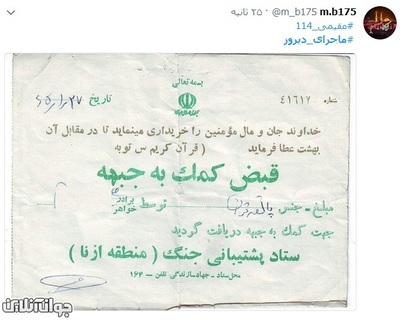 m.b175 @m_b175 · ۲۵ ثانیه
#مقیمی_114
#ماجرای_دیروز
بسمه تعالی
شماره ۴۱۶۱۷
تاریخ ۶۵/۱/۲۷
خداوند جان و مال مؤمنین را خریداری مینماید تا در مقابل آن
بهشت عطا فرماید ( قرآن کریم س توبه
قبض کمک به جبهه
مبلغ - جنس توسط برادر خواهر
جهت کمک به جبهه دریافت گردید
ستاد پشتیبانی جنگ ( منطقه ازنا )
محل ستاد - جهاد سازندگی تلفن - ۱۶۴
جوان‌آنلاین